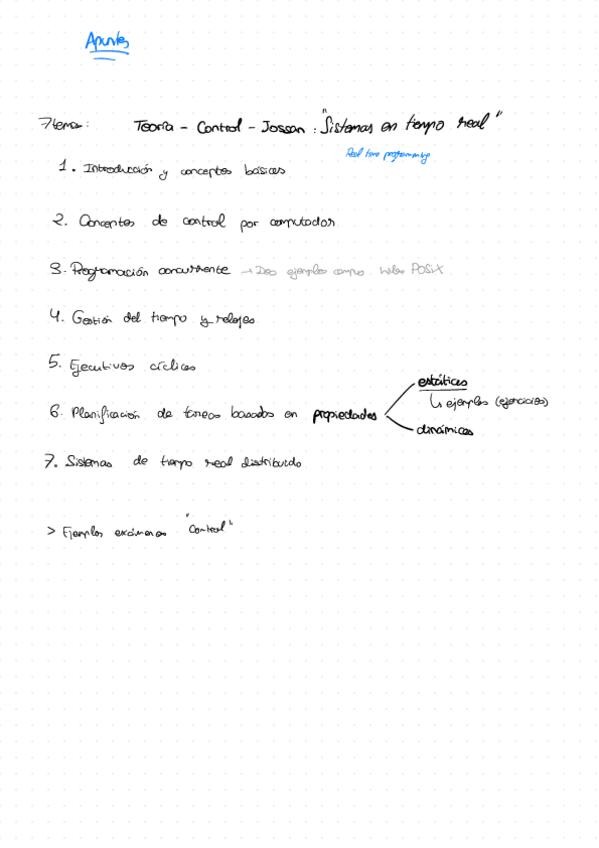 Apuntes
Temas: Teoría - Control - Jossan: "Sistemas en tiempo real"
Real time programming
1. Introducción y conceptos básicos
2. Conceptos de control por computador
3. Programación concurrente → ejemplos POSIX
4. Gestión del tiempo y relojes
5. Ejecutivos cíclicos
6. Planificación de tareas basados en propiedades
estáticas
↳ ejemplos (ejercicios)
dinámicas
7. Sistemas de tiempo real distribuido
> Ejemplos exámenes "control"